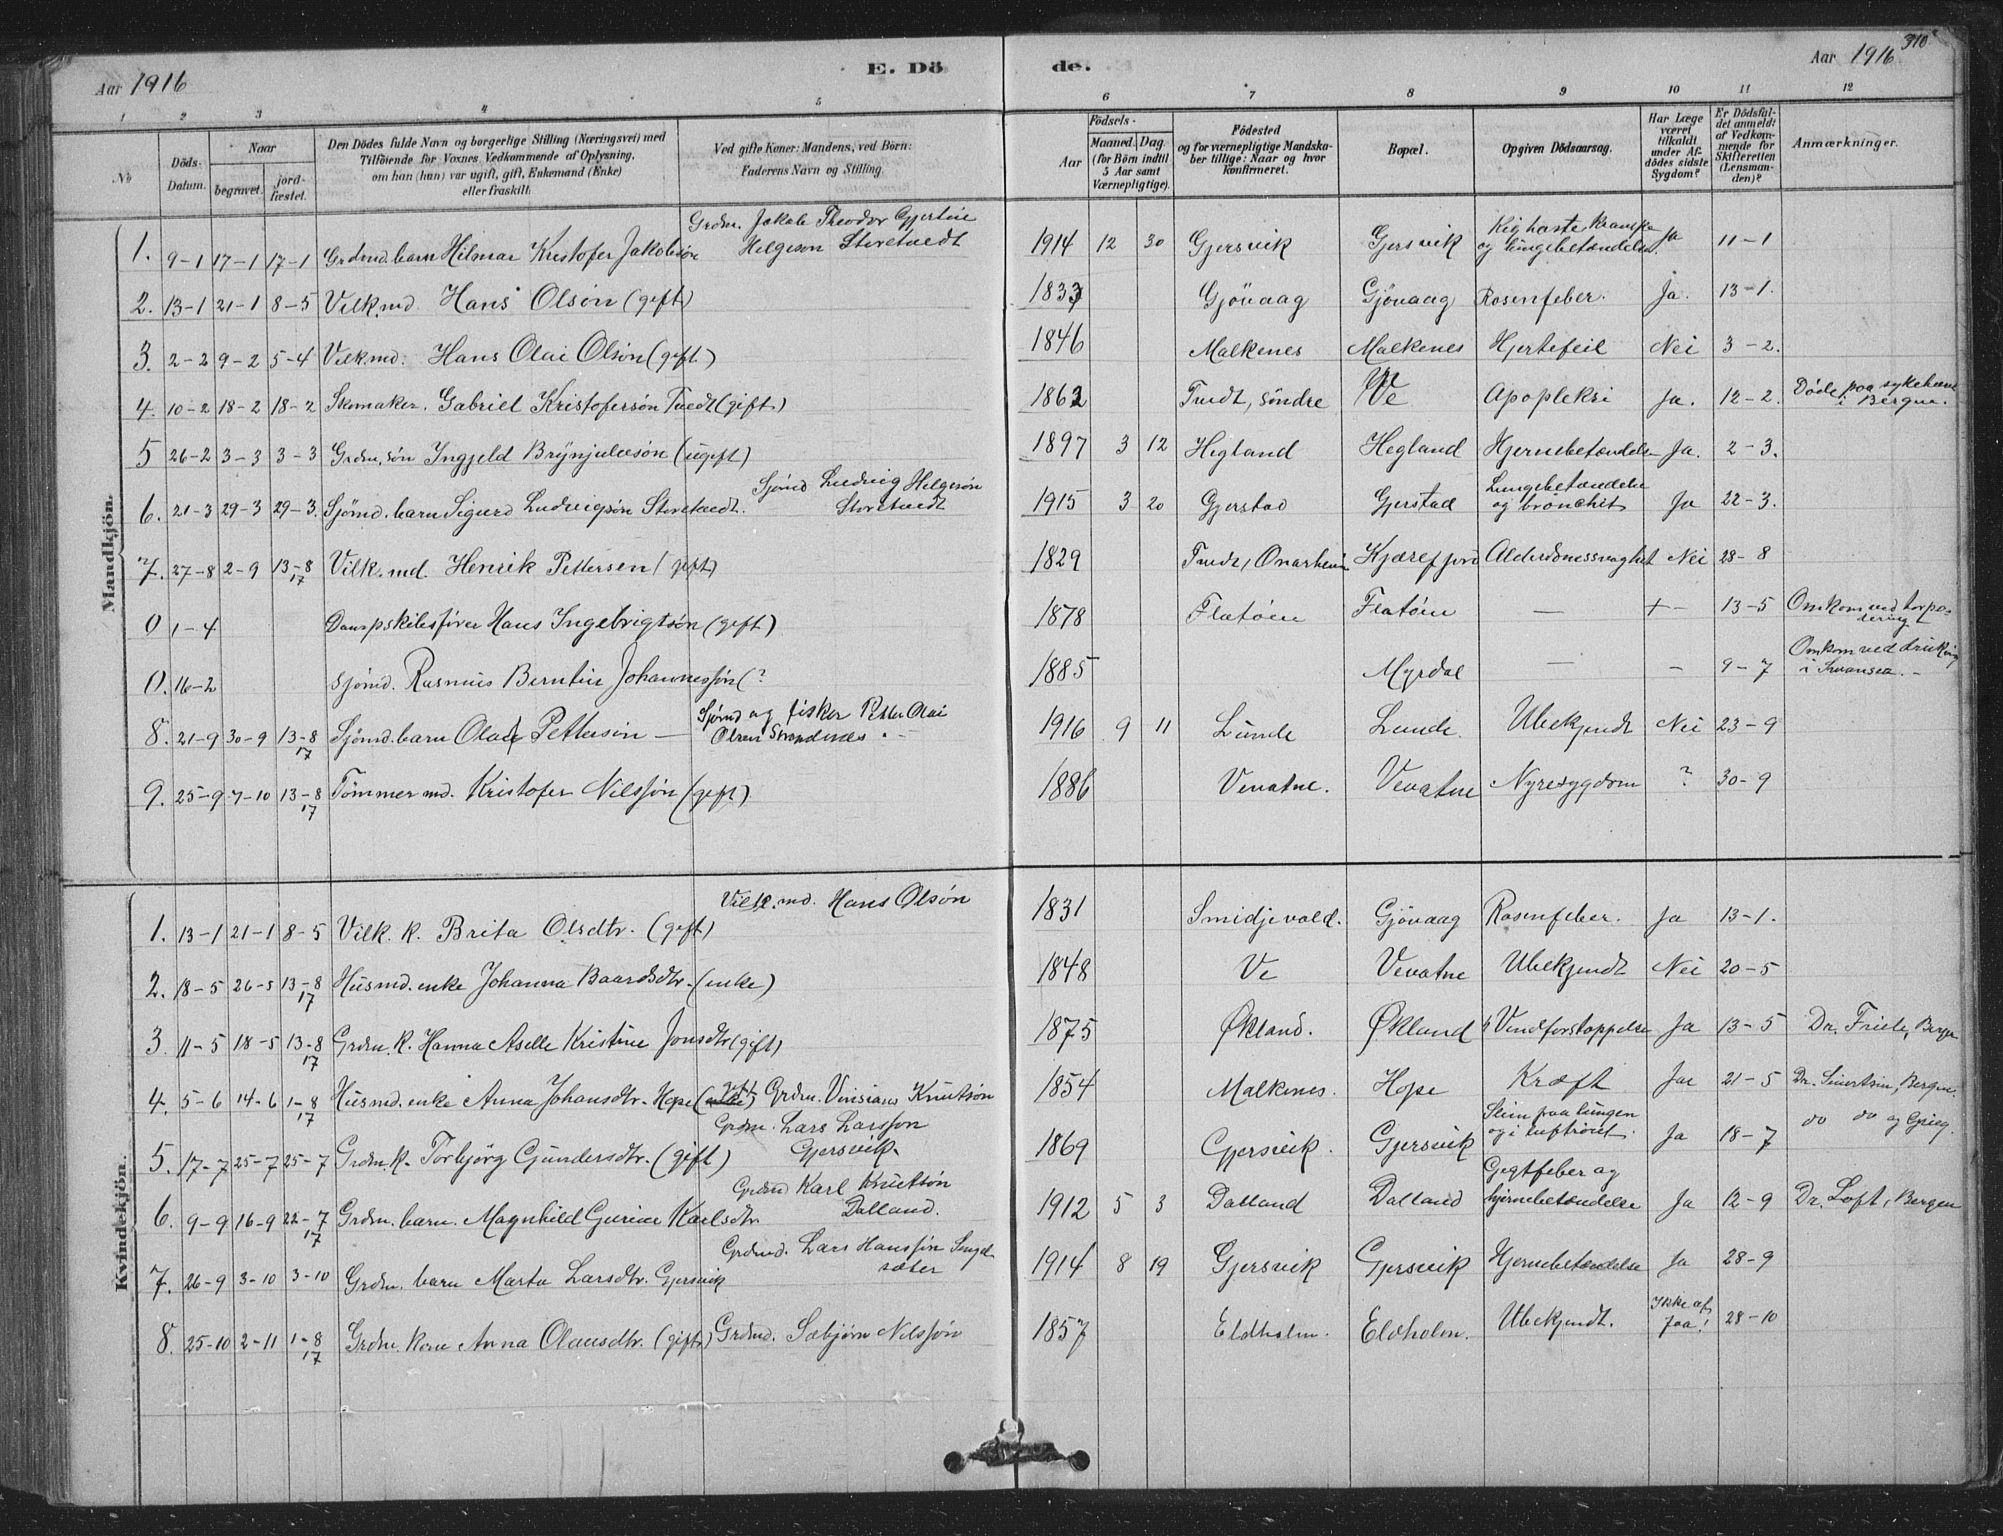 Aar 1916
E. Dö
de.
Aar 1916
310
1 2 3 4 5 6 7 8 9 10 11 12
No
Döds-Datum.
Naar
begravet.
jord-fæstet.
Den Dödes fulde Navn og borgerlige Stilling (Næringsvei) med
Tilföiende for Voxnes Vedkommende af Oplysning,
om han (hun) var ugift, gift, Enkemand (Enke)
eller fraskilt.
Ved gifte Koner: Mandens, ved Börn:
Faderens Navn og Stilling.
Födsels-
Aar
Maaned. Dag.
(for Börn indtil
5 Aar samt
Værnepligtige).
Födested
og for værnepligtige Mandska-
ber tillige: Naar og hvor
konfirmeret.
Bopæl.
Opgiven Dödsaarsag.
Har Læge
været
tilkaldt
under Af-
dödes sidste
Sygdom?
Er Dödsfal-
det anmeldt
af Vedkom-
mende for
Skifteretten
(Lensman-
den)?
Anmærkninger.
Mandkjön.
1. 9-1 17-1 17-1 Grdmd. barn Hilmar Kristofer Jakobsøn Grdm. Jakob Theodor Gjertine Helgeson Storetvedt 1914 12 30 Gjersvik Gjersvik Kighoste Krampe og lungebetændelse. Ja 11-1
2. 13-1 21-1 8-5 Vilk.md Hans Olsøn (gift) 1833 Gjövaag Gjövaag Rosenfeber. Ja. 13-1.
3. 2-2 9-2 5-4 Vilk.md. Hans Olai Olsøn (gift) 1846 Malkenes Malkenes Hjertefeil Nei 3-2.
4. 10-2 18-2 18-2 Skomaker. Gabriel Kristofersøn Tvedt (gift) 1862 Tvedt, søndre Ve Apopleksi Ja. 12-2. Døde paa sykehus i Bergen.
5 26-2 3-3 3-3 Grdm. søn Ingjeld Brynjulvsøn (ugift) 1897 3 12 Hegland Hegland Hjernebetændelse Ja. 2-3.
6. 21-3 29-3 29-3. Sjømd. barn Sigurd Ludvigsøn Storetvedt. Sjømd Ludvig Helgesøn Storetvedt 1915 3 20 Gjerstad Gjerstad Lungebetændelse og bronchit Ja 22-3.
7. 27-8 2-9 13-8 17 Vilk. md. Henrik Pettersen (gift) 1829 Tvedt, Onarheim Kjærefjord Alderdomssvaghet Nei 28-8
0 1-4 Dampskibsfører Hans Ingebrigtsøn (gift) 1878 Flatøen Flatøen — + - 13-5 Omkom ved torpedering
0. 16-2 Sjømd. Rasmus Berntin Johannessøn (? 1885 Myrdal — - 9-7 Omkom ved drukning i Swansea. -
8. 21-9 30-9 13-8 17 Sjømd. barn Olaf Pettersøn — Sjømd og fisker Petter Olai Olsen Strandenes. - 1916 9 11 Lunde Lunde. Ubekjendt Nei 23-9
9. 25-9 7-10 13-8 17 Tømmermd. Kristofer Nilssøn (gift) 1886 Vevatne. Vevatne Nyresygdom ? 30-9
Kvindekjön.
1. 13-1 21-1 8-5 Vilk. k. Brita Olsdtr. (gift) Vilk. md. Hans Olsøn 1831 Smidjevold. Gjövaag Rosenfeber. Ja 13-1.
2. 18-5 26-5 13-8 17 Husmd. enke Johanna Baardsdtr. (enke) 1848 Ve Vevatne Ubekjendt Nei 20-5
3. 11-5 18-5 13-8 17 Grdm. k. Hanna Aselle Kristine Jonsdtr (gift) 1875 Økland. Økland Vindforstoppelse Ja 13-5 Dr. Friele, Bergen
4. 5-6 14-6 1-8 17 Husmd. enke Anna Johansdtr. Hope (gift) Grdm. Vinsians Knutsøn 1854 Malkenes. Hope Kræft Ja 21-5 Dr. Sivertsen, Bergen.
5. 17-7 25-7 25-7 Grdm. k. Torbjørg Gundersdtr. (gift) Grdm. Lars Larsson Gjersvik. 1869 Gjersvik. Gjersvik Slim paa lungen og i luftrøret. Ja 18-7 do do og Grieg.
6. 9-9 16-9 22-7 17 Grdm. barn. Magnhild Gurine Karlsdtr Grdmd Karl Knutsøn Dalland. 1912 5 3 Dalland Dalland Gigtfeber og hjernebetændelse Ja 12-9 Dr. Loft, Bergen
7. 26-9 3-10 3-10 Grdm. barn Marta Larsdtr. Gjersvik Grdmd. Lars Hanssøn Singelsæter 1914 8 19 Gjersvik Gjersvik Hjernebetændelse Ja 28-9
8. 25-10 2-11 1-8 17 Grdm. kone Anna Olausdtr. (gift) Grdmd. Sæbjørn Nilssøn 1857 Eldholm. Eldholm. Ubekjendt. Ikke af faa! 28-10